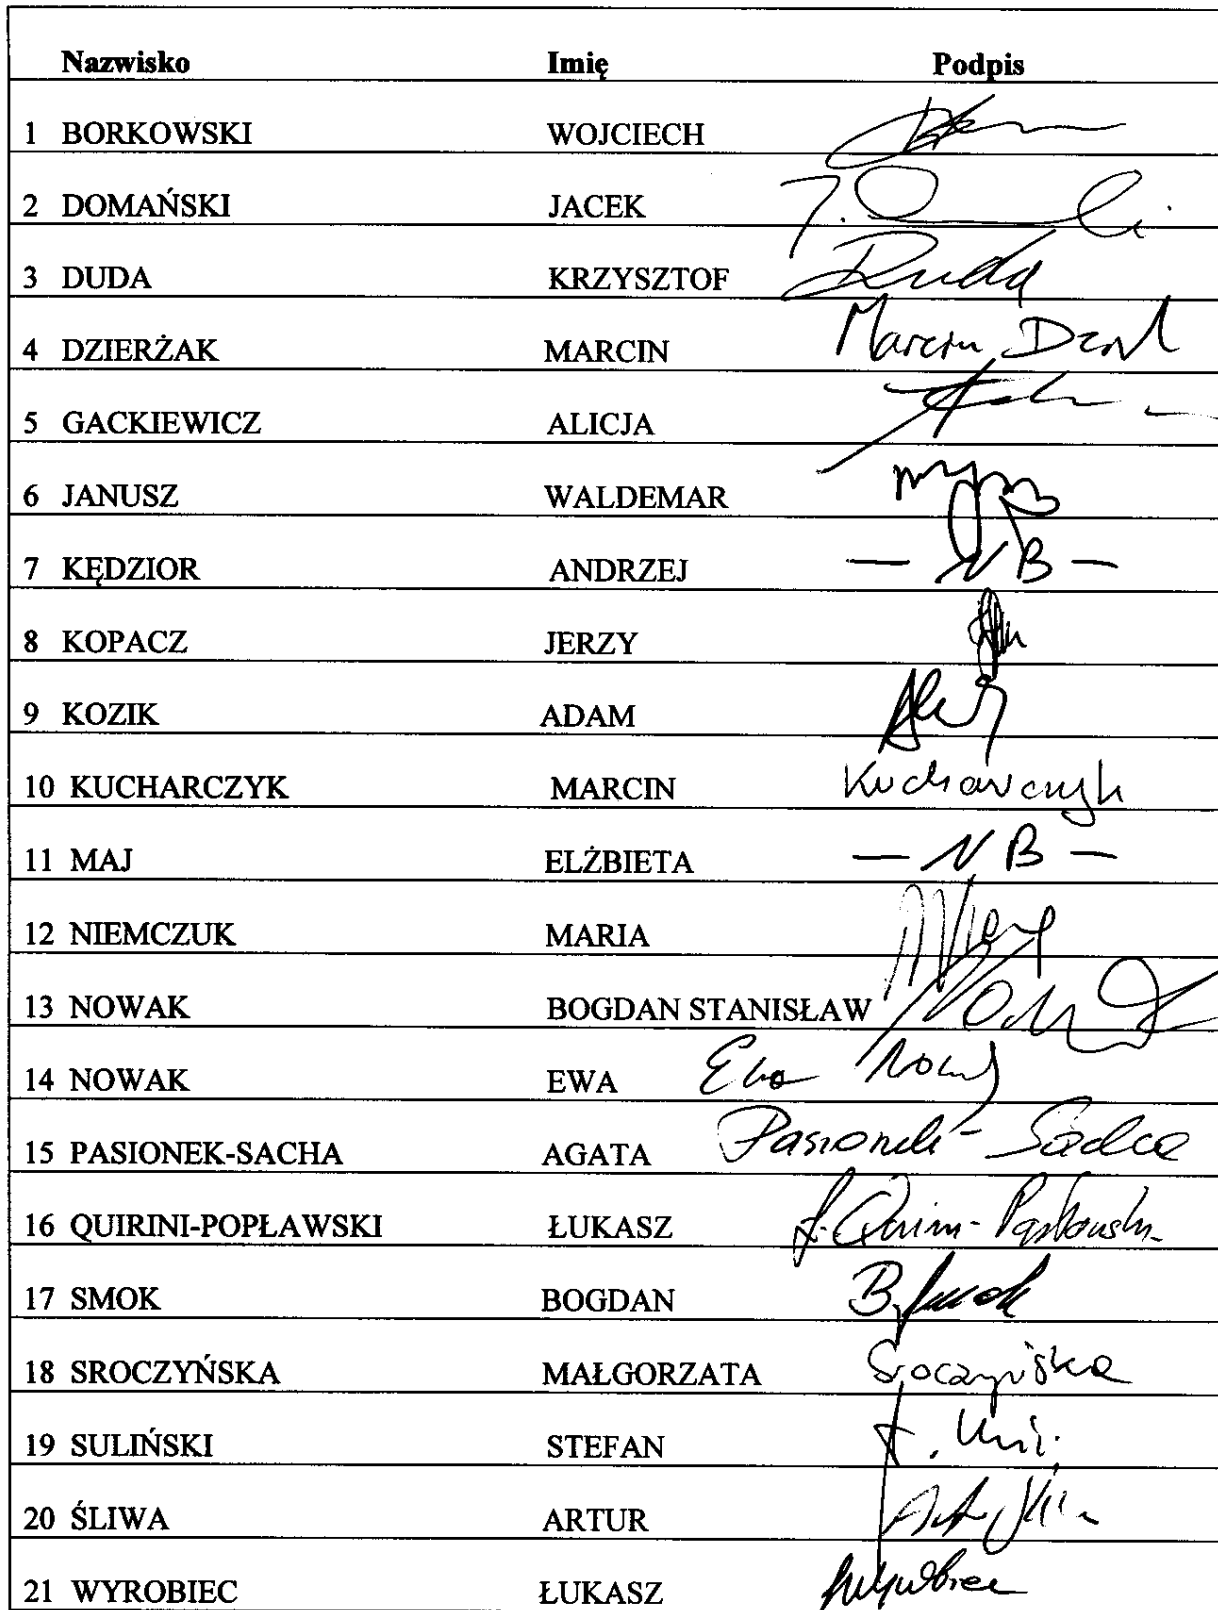 Nazwisko Imię Podpis
1 BORKOWSKI WOJCIECH
2 DOMAŃSKI JACEK J.
3 DUDA KRZYSZTOF Duda
4 DZIERŻAK MARCIN Marcin
5 GACKIEWICZ ALICJA
6 JANUSZ WALDEMAR
7 KĘDZIOR ANDRZEJ — NB —
8 KOPACZ JERZY
9 KOZIK ADAM
10 KUCHARCZYK MARCIN Kucharczyk
11 MAJ ELŻBIETA — NB —
12 NIEMCZUK MARIA
13 NOWAK BOGDAN STANISŁAW
14 NOWAK EWA Ewa Nowak
15 PASIONEK-SACHA AGATA Pasionek-Sacha
16 QUIRINI-POPŁAWSKI ŁUKASZ Ł. Quirini-Popławski
17 SMOK BOGDAN B. Smok
18 SROCZYŃSKA MAŁGORZATA Sroczyńska
19 SULIŃSKI STEFAN
20 ŚLIWA ARTUR
21 WYROBIEC ŁUKASZ